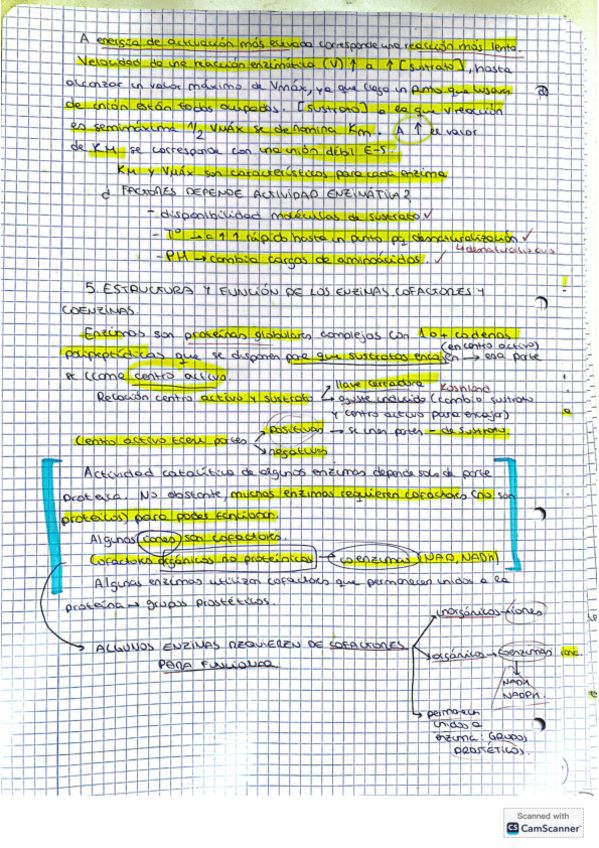 A energía de activación más elevada corresponde una reacción más lenta.
Velocidad de una reacción enzimática (V) ↑ a ↑ [sustrato], hasta
alcanzar un valor máximo de Vmáx, ya que llega un punto que lugares
de unión están todos ocupados. [sustrato] a la que V reacción
es semimáxima 1/2 VMÁX se denomina Km. A ↑ el valor
de KM se corresponde con una unión débil E-S.
KM y VMÁX son característicos para cada enzima
d FACTORES DEPENDE ACTIVIDAD ENZIMÁTIVA?
- disponibilidad moléculas de sustrato ✓
- Tº → a ↑↑ rápido hasta un punto pq desnaturalización ✓
- PH → cambia cargas de aminoácidos. ✓
5. ESTRUCTURA Y FUNCIÓN DE LOS ENZIMAS. COFACTORES Y
COENZIMAS.
Enzimas son proteínas globulares complejas con 1 o + cadenas
(en centro activo)
polipeptídicas que se disponen para que sustratos encajen → esa parte
se llama centro activo.
Relación centro activo y sustrato
llave cerradura
Koshland
ajuste inducido (cambia sustrato
y centro activo para encajar)
Centro activo tiene partes
positivas → se unen partes - de sustrato
negativas
Actividad catalítica de algunos enzimas depende solo de parte
proteica. No obstante, muchas enzimas requieren cofactores (no son
proteicos) para poder funcionar.
Algunos iones son cofactores.
Cofactores orgánicos no proteínicos → coenzimas (NAD, NADH)
Algunas enzimas utilizan cofactores que permanecen unidos a la
proteína → grupos prostéticos.
ALGUNOS ENZIMAS REQUIEREN DE COFACTORES
PARA FUNCIONAR
inorgánicos → iones
orgánicos → coenzimas
NADH
NADPH.
permanecen
unidos a
enzima: GRUPOS
PROSTÉTICOS.
Scanned with
CS CamScanner